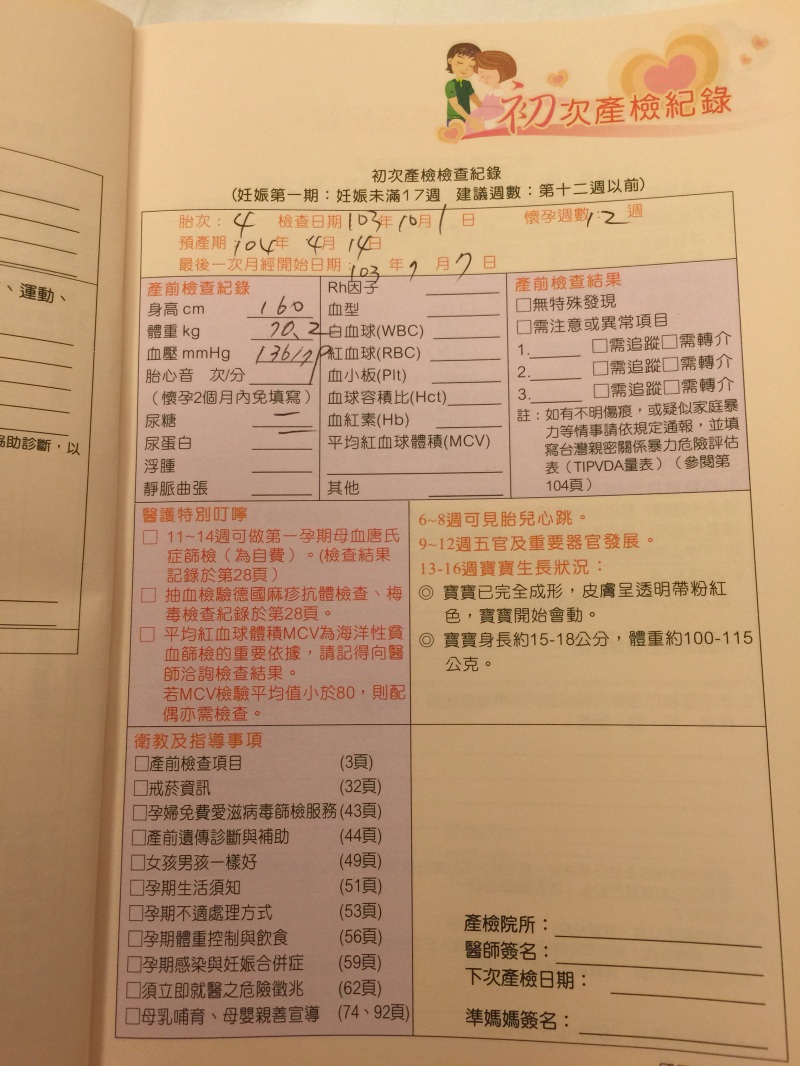 初次產檢紀錄
初次產檢檢查紀錄
(妊娠第一期：妊娠未滿17週 建議週數：第十二週以前)
胎次：4 檢查日期 103年10月1日 懷孕週數：12週
預產期：104年 4月 14日
最後一次月經開始日期：103年7月7日
產前檢查紀錄
身高 cm 160
體重 kg 70.2
血壓 mmHg 136/79
胎心音 次/分
(懷孕2個月內免填寫)
尿糖 —
尿蛋白 —
浮腫
靜脈曲張
Rh因子
血型
白血球(WBC)
紅血球(RBC)
血小板(Plt)
血球容積比(Hct)
血紅素(Hb)
平均紅血球體積(MCV)
其他
產前檢查結果
□無特殊發現
□需注意或異常項目
1. □需追蹤□需轉介
2. □需追蹤□需轉介
3. □需追蹤□需轉介
註：如有不明傷痕，或疑似家庭暴
力等情事請依規定通報，並填
寫台灣親密關係暴力危險評估
表（TIPVDA量表）（參閱第
104頁）
醫護特別叮嚀
□ 11~14週可做第一孕期母血唐氏
症篩檢（為自費）。(檢查結果
記錄於第28頁）
□ 抽血檢驗德國麻疹抗體檢查、梅
毒檢查紀錄於第28頁。
□ 平均紅血球體積MCV為海洋性貧
血篩檢的重要依據，請記得向醫
師洽詢檢查結果。
若MCV檢驗平均值小於80，則配
偶亦需檢查。
6~8週可見胎兒心跳。
9~12週五官及重要器官發展。
13-16週寶寶生長狀況：
◎ 寶寶已完全成形，皮膚呈透明帶粉紅
色，寶寶開始會動。
◎ 寶寶身長約15-18公分，體重約100-115
公克。
衛教及指導事項
□產前檢查項目 (3頁)
□戒菸資訊 (32頁)
□孕婦免費愛滋病毒篩檢服務 (43頁)
□產前遺傳診斷與補助 (44頁)
□女孩男孩一樣好 (49頁)
□孕期生活須知 (51頁)
□孕期不適處理方式 (53頁)
□孕期體重控制與飲食 (56頁)
□孕期感染與妊娠合併症 (59頁)
□須立即就醫之危險徵兆 (62頁)
□母乳哺育、母嬰親善宣導 (74、92頁)
產檢院所：
醫師簽名：
下次產檢日期：
準媽媽簽名：
、運動、
協助診斷，以